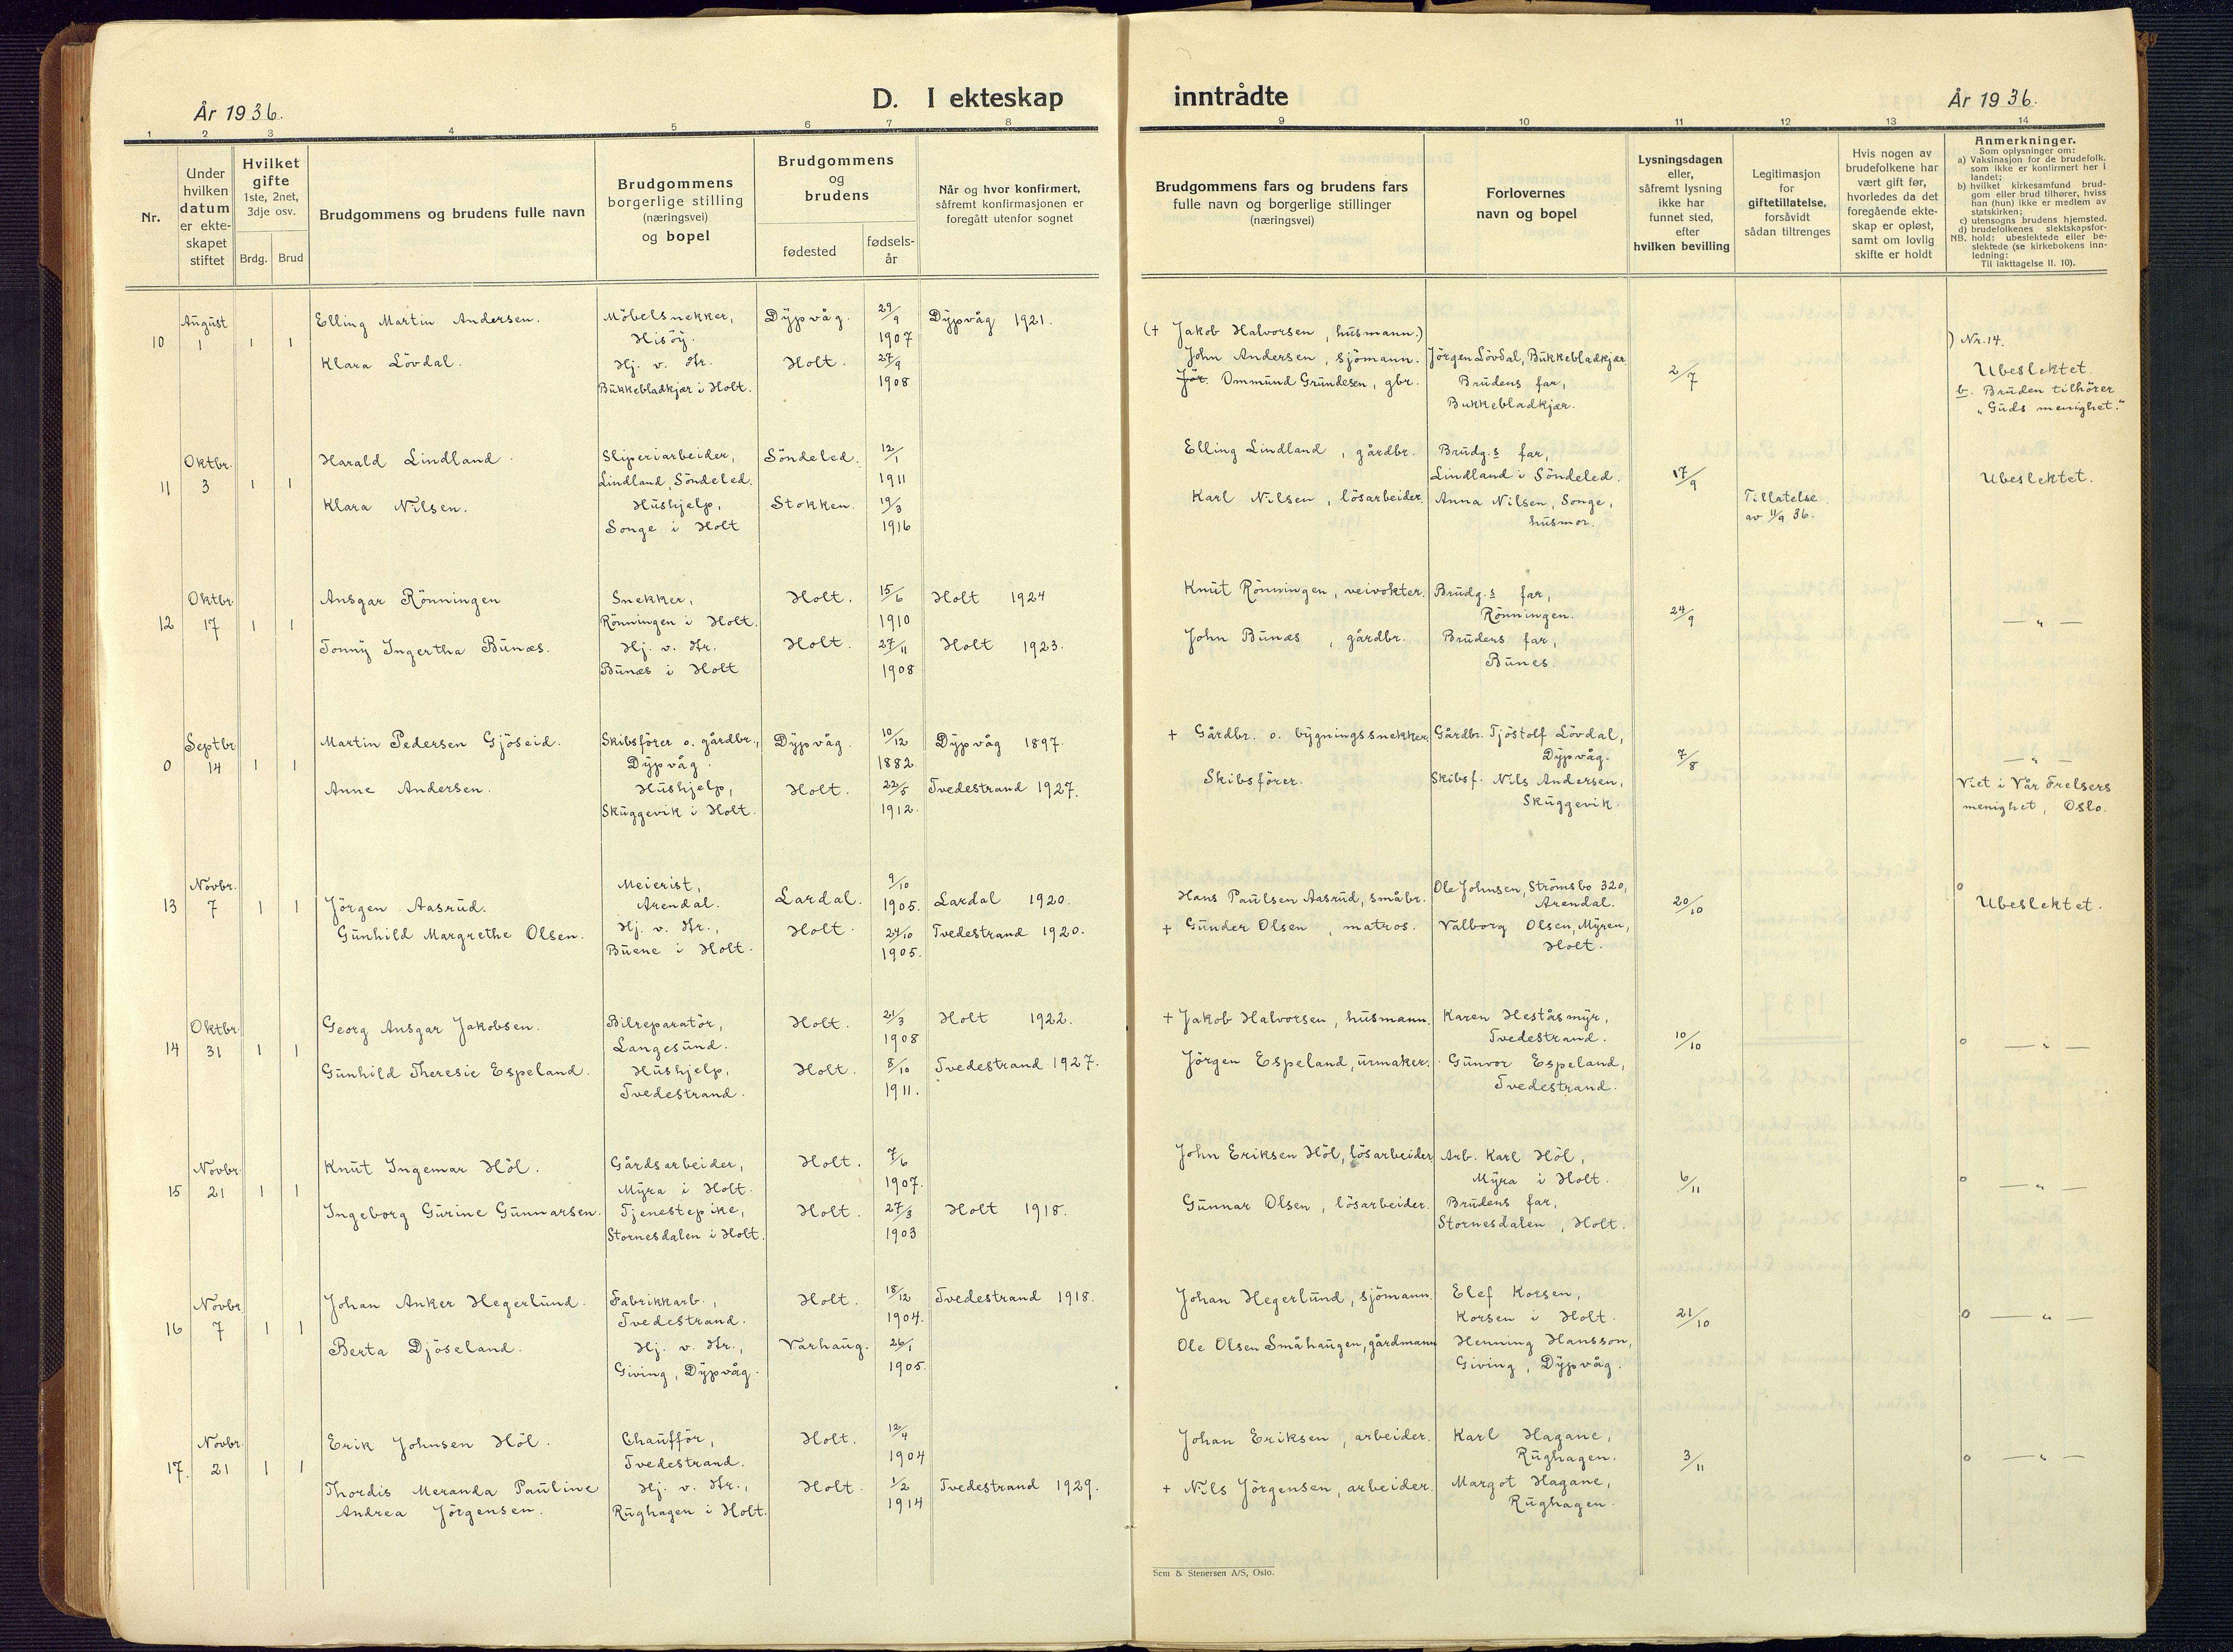 År 1936.
D. I ekteskap
inntrådte
År 1936.
1 2 3 4 5 6 7 8 9 10 11 12 13 14
Nr.
Under hvilken datum er ekte-skapet stiftet
Hvilket gifte 1ste, 2net, 3dje osv.
Brdg. Brud
Brudgommens og brudens fulle navn
Brudgommens borgerlige stilling (næringsvei) og bopel
Brudgommens og brudens
fødested
fødsels-år
Når og hvor konfirmert, såfremt konfirmasjonen er foregått utenfor sognet
Brudgommens fars og brudens fars fulle navn og borgerlige stillinger (næringsvei)
Forlovernes navn og bopel
Lysningsdagen eller, såfremt lysning ikke har funnet sted, efter hvilken bevilling
Legitimasjon for giftetillatelse, forsåvidt sådan tiltrenges
Hvis nogen av brudefolkene har vært gift før, hvorledes da det foregående ekte-skap er opløst, samt om lovlig skifte er holdt
Anmerkninger.
Som oplysninger om:
a) Vaksinasjon for de brudefolk. som ikke er konfirmert her i landet;
b) hvilket kirkesamfund brud-gom eller brud tilhører, hviss han (hun) ikke er medlem av statskirken;
c) utensogns brudens hjemsted.
d) brudefolkenes slektskapsfor-hold: ubeslektede eller be-slektede (se kirkebokens inn-ledning:
NB.
Til iakttagelse II. 10).
10 August 1 1 1
Elling Martin Andersen. Möbelsnekker, Hisöy. Dypvåg. 29/9 1907 Dypvåg 1921.
Klara Lövdal. Hj. v. Hr. Bukkebladkjær i Holt. Holt. 27/9 1908
(+ Jakob Halvorsen, husmann.)
John Andersen, sjömann. Jörgen Lövdal, Bukkebladkjær
Jör. Ommund Grundesen, gbr. Brudens far, Bukkebladkjær.
2/7
) Nr. 14.
Ubeslektet.
b. Bruden tilhörer
"Guds menighet."
11 Oktbr. 3 1 1
Harald Lindland. Sliperiarbeider, Lindland, Söndeled. Söndeled. 12/1 1911
Klara Nilsen. Hushjelp, Songe i Holt Stokken. 19/3 1916
Elling Lindland, gårdbr. Brudg.s far, Lindland i Söndeled.
Karl Nilsen, lösarbeider. Anna Nilsen, Songe, husmor.
17/9
Tillatelse av 11/9 36.
Ubeslektet.
12 Oktbr 17 1 1
Ansgar Rönningen Snekker, Rönningen i Holt. Holt. 15/6 1910 Holt 1924
Tonny Ingertha Bunæs. Hj. v. Hr. Bunæs i Holt Holt. 27/11 1908 Holt 1923.
Knut Rönningen, veivokter. Brudg.s far, Rönningen.
John Bunæs, gårdbr. Brudens far, Bunes.
24/9
— " —
0 Septbr 14 1 1
Martin Pedersen Gjöseid. Skibsförer o. gårdbr., Dypvåg. Dypvåg. 10/12 1882. Dypvåg 1897.
Anne Andersen. Hushjelp, Skuggevik i Holt. Holt. 22/5 1912. Tvedestrand 1927.
+ Gårdbr. o. bygningssnekker, Gårdbr. Tjöstolf Lövdal, Dypvåg.
Skibsförer. Skibsf. Nils Andersen, Skuggevik.
7/8
— " —
Viet i Vår Frelsers menighet, Oslo.
13 Novbr. 7 1 1
Jörgen Aasrud. Meierist, Arendal. Lardal. 9/10 1905. Lardal 1920.
Gunhild Margrethe Olsen. Hj. v. Hr., Buene i Holt. Holt. 24/10 1905. Tvedestrand 1920.
Hans Paulsen Aasrud, småbr. Ole Johnsen, Strömsbo 320, Arendal.
+ Gunder Olsen, matros. Valborg Olsen, Myren, Holt.
20/10
o Ubeslektet.
14 Oktbr. 31 1 1
Georg Ansgar Jakobsen. Bilreparatör, Langesund. Holt. 21/3 1908 Holt 1922.
Gunhild Theresie Espeland. Hushjelp, Tvedestrand. Holt. 8/10 1911. Tvedestrand 1927.
+ Jakob Halvorsen, husmann. Karen Heståsmyr, Tvedestrand.
Jörgen Espeland, urmaker. Gunvor Espeland, Tvedestrand.
10/10
o — " —
15 Novbr. 21 1 1
Knut Ingemar Höl. Gårdsarbeider, Myra i Holt. Holt. 7/6 1907.
Ingeborg Gurine Gunnarsen. Tjenestepike, Stornesdalen i Holt. Holt. 27/3 1903 Holt 1918.
John Eriksen Höl, lösarbeider Arb. Karl Höl, Myra i Holt.
Gunnar Olsen, lösarbeider. Brudens far, Stornesdalen, Holt.
6/11
o — " —
16 Novbr. 7 1 1
Johan Anker Hegerlund. Fabrikkarb., Tvedestrand. Holt. 18/12 1904. Tvedestrand 1918.
Berta Djöseland. Hj. v. Hr., Giving, Dypvåg. Varhaug. 26/1 1905.
Johan Hegerlund, sjömann. Elef Korsen, Korsen i Holt.
Ole Olsen Småhaugen, gårdmann Henning Hansson, Giving, Dypvåg.
21/10
o — " —
17. Novbr. 21 1 1
Erik Johnsen Höl. Chaufför, Tvedestrand. Holt. 12/4 1904
Thordis Meranda Pauline Andrea Jörgensen. Hj. v. Hr., Rughagen i Holt. Holt. 1/2 1914 Tvedestrand 1929.
Johan Eriksen, arbeider. Karl Hagane, Rughagen.
+ Nils Jörgensen, arbeider. Margot Hagane, Rughagen.
3/11
o — " —
Sem & Stenersen A/S, Oslo.